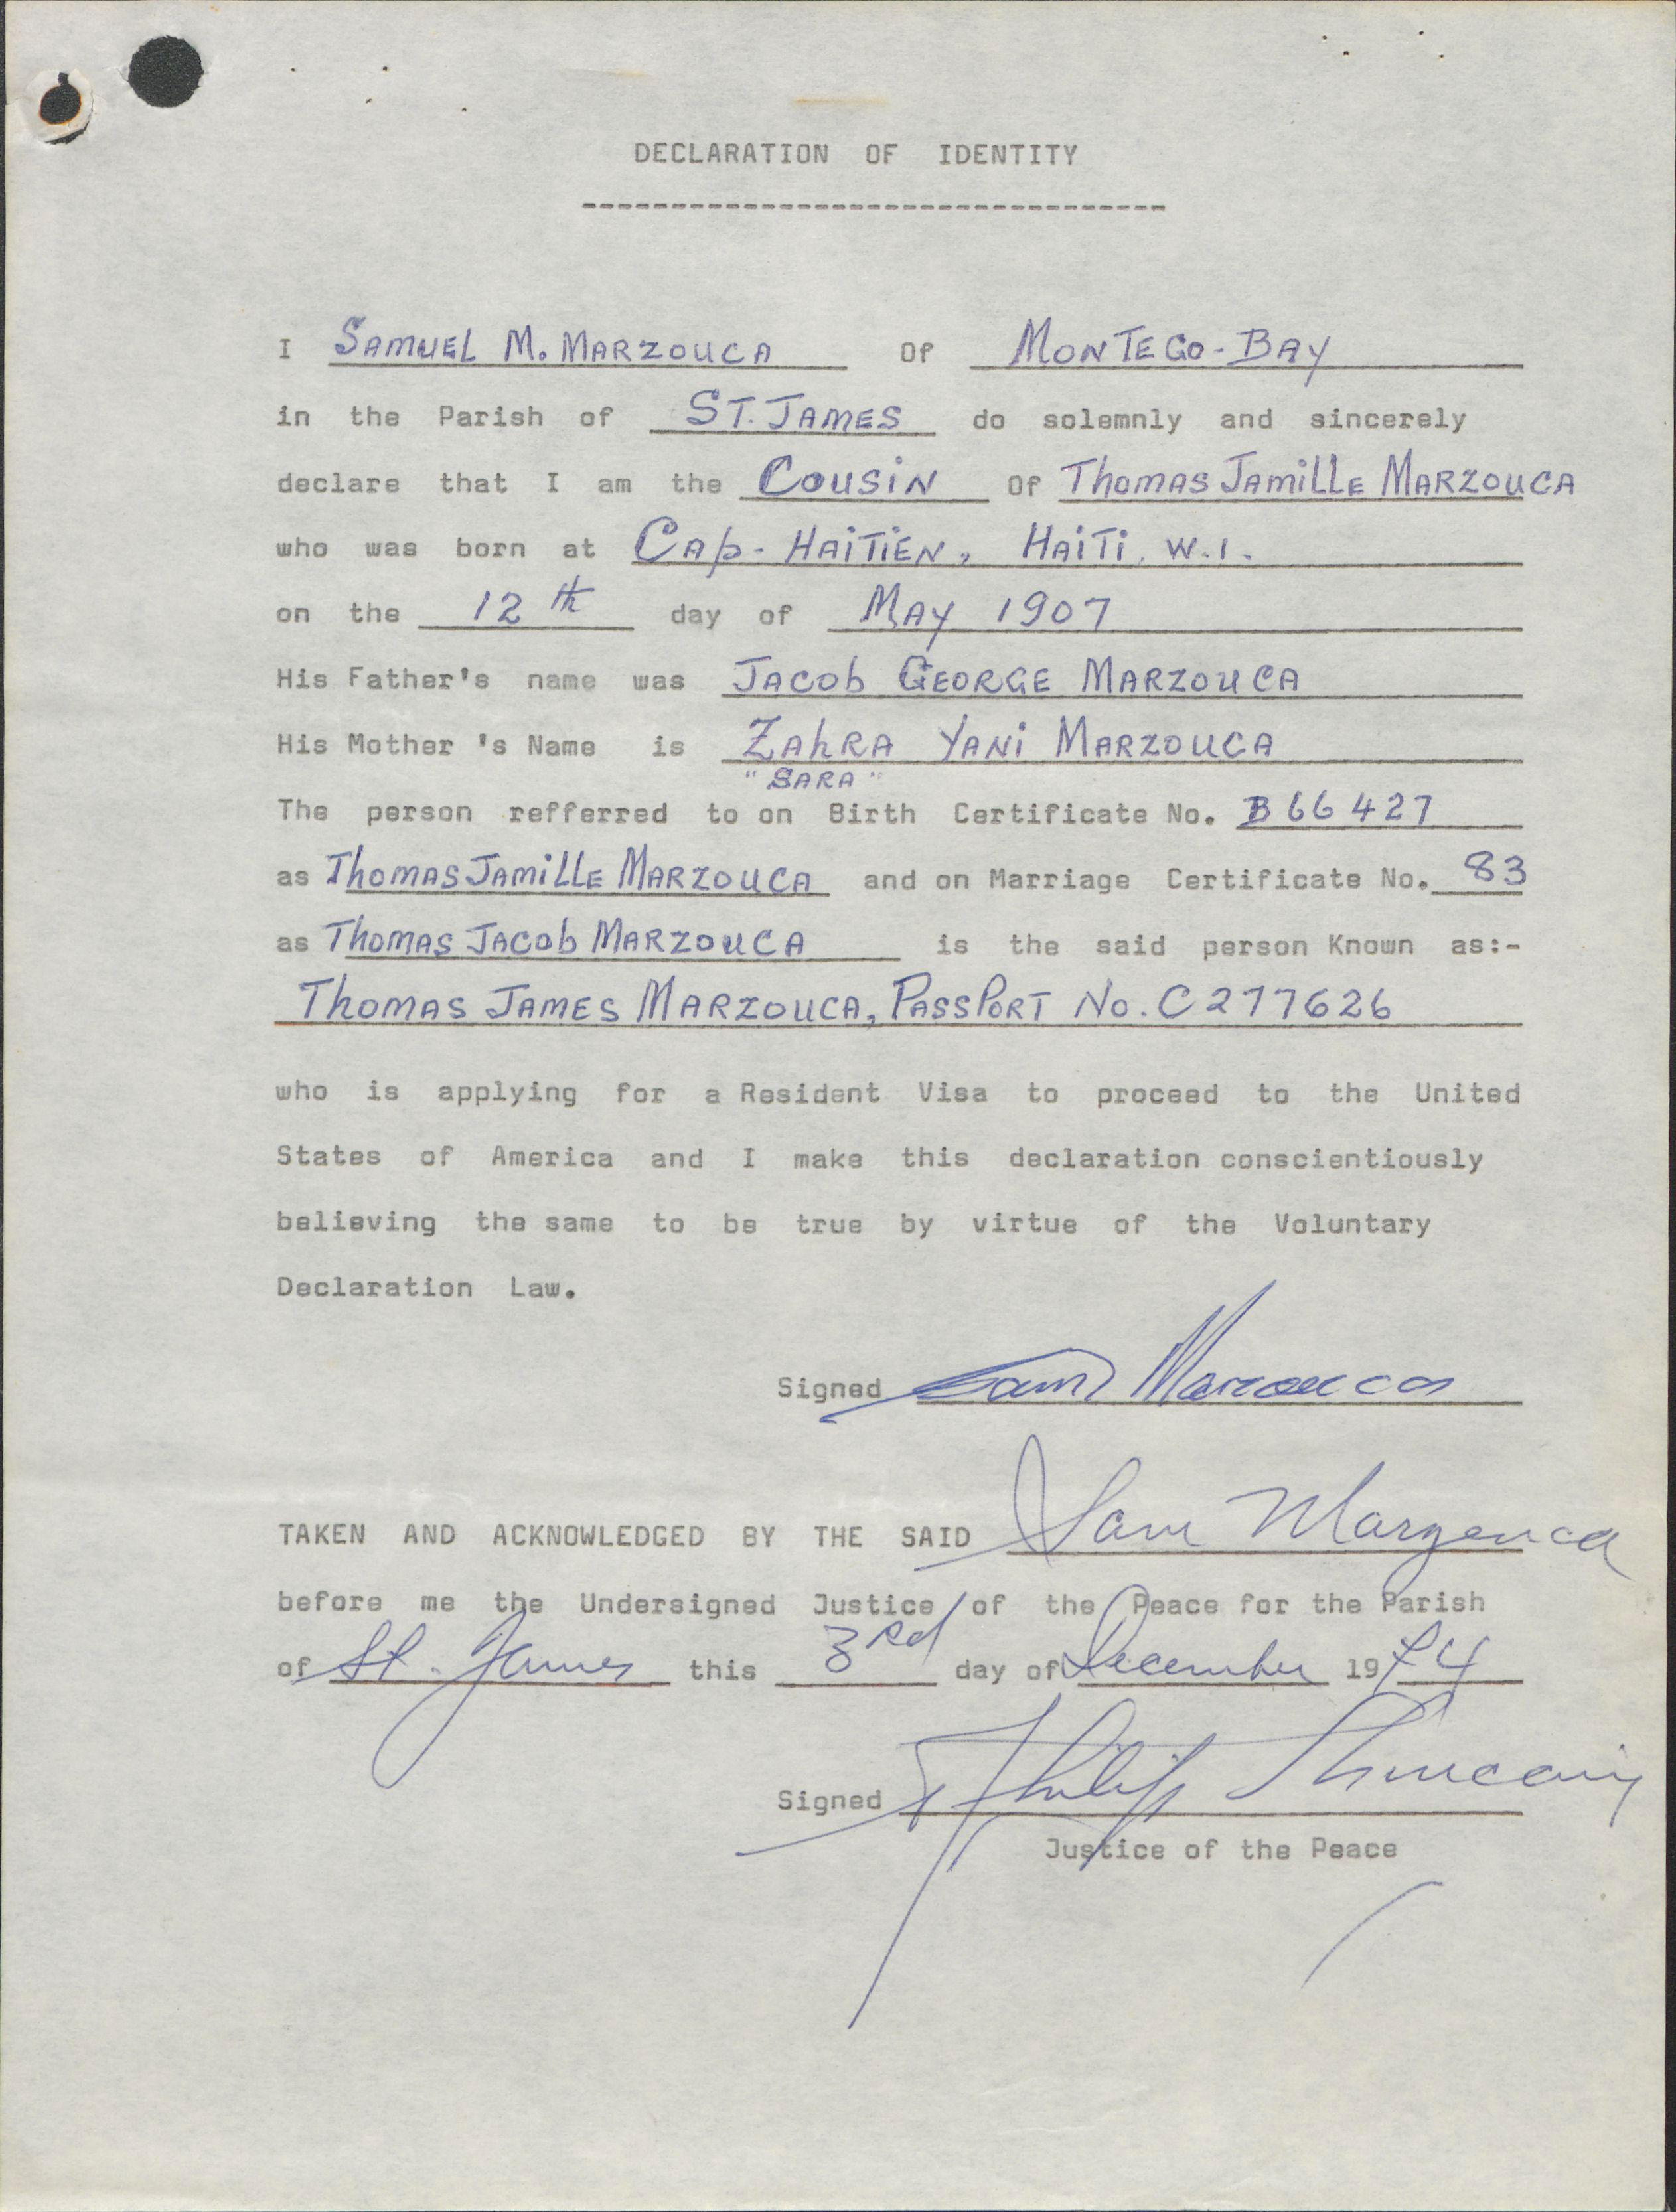 DECLARATION OF IDENTITY
---------------------------------
I SAMUEL M. MARZOUCA Of MONTEGO-BAY
in the Parish of ST. JAMES do solemnly and sincerely
declare that I am the COUSIN Of Thomas Jamille MARZOUCA
who was born at Cap-HAiTiEN, HAiTi, W.I.
on the 12th day of MAY 1907
His Father's name was JACOb GEORGE MARZOUCA
His Mother 's Name is ZAhRA YANi MARZOUCA
"SARA"
The person refferred to on Birth Certificate No. B66427
as Thomas Jamille MARZOUCA and on Marriage Certificate No. 83
as Thomas Jacob MARZOUCA is the said person Known as:-
Thomas JAMES MARZOUCA, PASSPORT No. C277626
who is applying for a Resident Visa to proceed to the United
States of America and I make this declaration conscientiously
believing the same to be true by virtue of the Voluntary
Declaration Law.
Signed Sam Marzouca
TAKEN AND ACKNOWLEDGED BY THE SAID Sam Marzouca
before me the Undersigned Justice of the Peace for the Parish
of St. James this 3rd day of December 1974
Signed Philip
Justice of the Peace